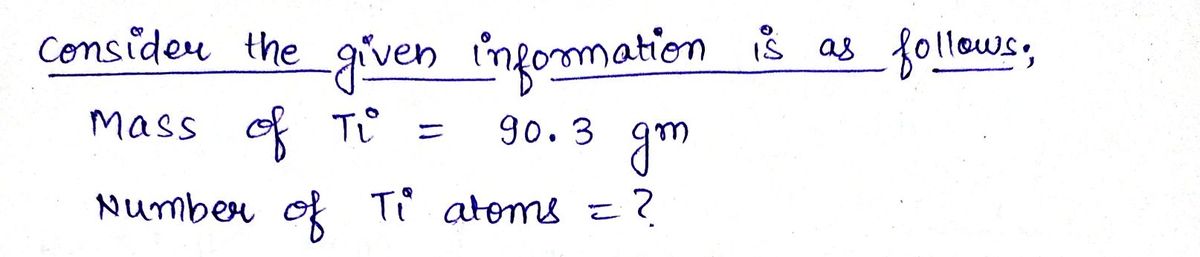 Consider the given information is as follows;
Mass of Ti = 90.3 gm
Number of Ti atoms = ?